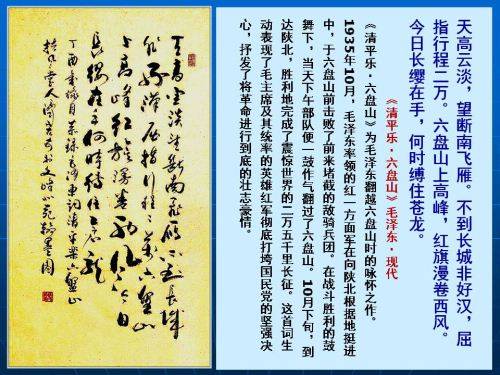 天高云淡，望断南飞雁。不到长城非好汉，屈
指行程二万。六盘山上高峰，红旗漫卷西风。
今日长缨在手，何时缚住苍龙。
《清平乐·六盘山》毛泽东·现代
《清平乐·六盘山》为毛泽东翻越六盘山时的咏怀之作。
1935年10月，毛泽东率领的红一方面军在向陕北根据地挺进
中，于六盘山前击败了前来堵截的敌骑兵团。在战斗胜利的鼓
舞下，当天下午部队便一鼓作气翻过了六盘山。10月下旬，到
达陕北，胜利地完成了震惊世界的二万五千里长征。这首词生
动表现了毛主席及其统率的英雄红军彻底打垮国民党的坚强决
心，抒发了将革命进行到底的壮志豪情。
天高云淡望断南飞雁不到长城
非好汉屈指行程二万六盘山
上高峰红旗漫卷西风今日
长缨在手何时缚住苍龙